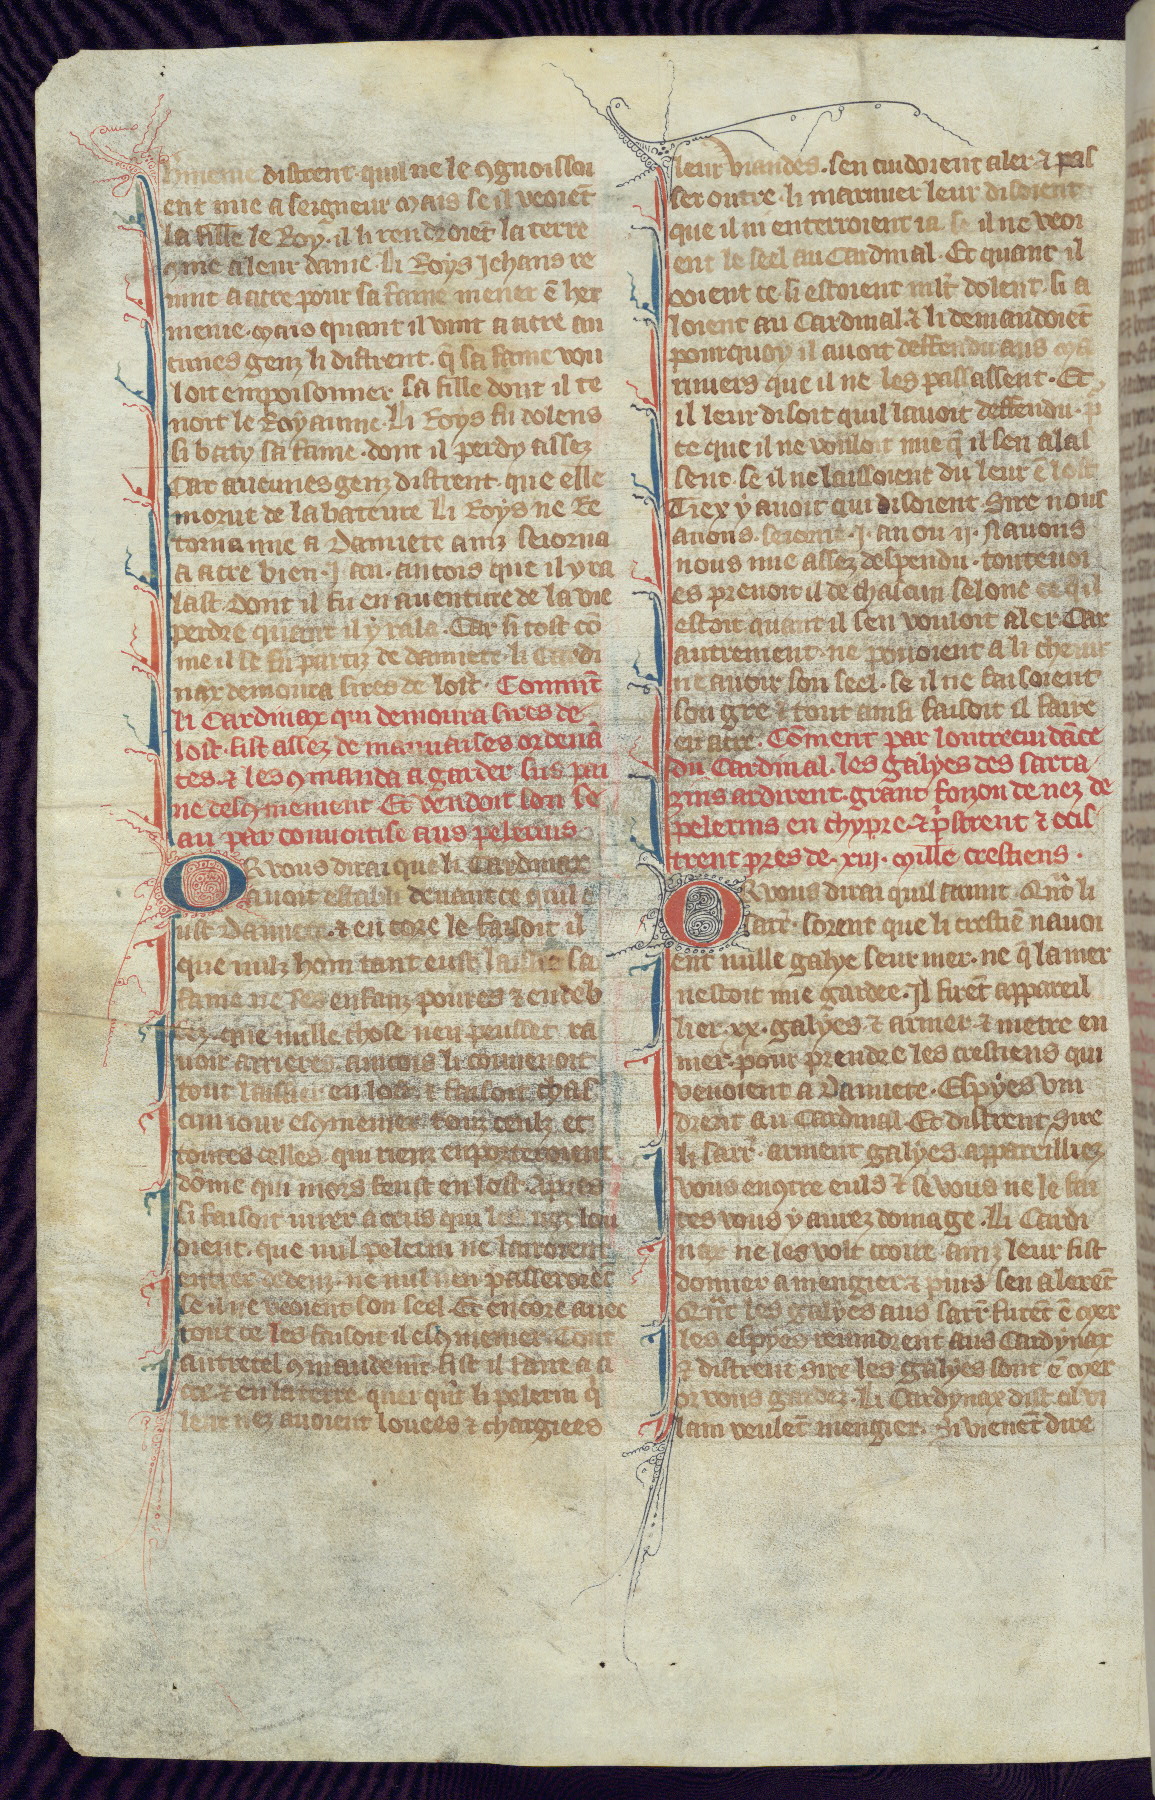 hmenie distrent quil ne le 9gnoissoi
ent mie a seigneur mais se il veoiēt
la fille le Roy. il li rendroiēt la terre
9me a leur dame. Li Roys Jehans re
vint a acre pour sa fame mener ē her
menie. mais quant il vint a acre au
cunes genz li distrent. q̄ sa fame vou
loit empoisonner sa fille dont il te
noit le Royaume. Li Roys fu dolens
si baty sa fame. dont il perdy assez
Car aucunes genz distrent. que elle
morut de la bateure Li Roys ne Re
torna mie a Damiete ainz seiorna
a acre bien .J. an. ancois que il y ra
last. dont il fu en auenture de la vie
perdre quant il y rala. Car si tost cō
me il se fu partiz de damiete. li Cardi
nax demoura sires de lost. Commēt
li Cardinax qui demoura sires de
lost. fist assez de mauuaises ordenā
ces. & les 9manda a garder sus pai
ne desc9meniemt Et vendoit son se
au par conuoitise aus pelerins.
OR vous dirai que li Cardinax
auoit establi deuant ce quil e
ust Damiete. & encore le faisoit il
que nulz hom tant eust laissie sa
fame ne ses enfanz poures & endeb
tez. que nulle chose nen peussēt ra
uoir arrieres. ancois li couuenoit
tout laissier en lost & faisoit chas
cun iour esc9menier touz ceulz et
toutes celles qui riens enporteroient
dōme qui mors feust en lost. Apres
si faisoit iurer a ceus qui les nez lou
oient. que nul pelerin ne lairoient
entrer dedenz. ne nul nen passeroiēt
se il ne veoient son seel. Et encore auec
tout ce les faisoit il esc9menier. Tout
autretel 9mandemēt fist il faire a a
cre & en la terre. quer qūt li pelerin q̄
leur nez auoient louees & chargiees
leur viandes. sen cuidoient aler & pas
ser outre. li marinier leur disoient
que il ni enterroient ia. se il ne veoi
ent le seel au Cardinal. Et quant il
ooient ce si estoient mlt dolent. si a
loient au Cardinal. & li demandoiēt
pourquoy il auoit deffendu aus ma
riniers que il ne les passassent. Et
il leur disoit quil lauoit deffendu. p
ce que il ne vouloit mie q̄ il sen alas
sent. se il ne laissoient du leur ē lost
Tiex y auoit qui disoient Sire nous
auons. seiorne .J. an ou .ij. Nauons
nous mie assez despendu. toutevoi
es prenoit il de chascun selonc ce quil
estoit quant il sen vouloit aler Car
autrement. ne pouoient a li cheuir
ne auoir son seel. se il ne faisoient
son gre & tout ainsi faisoit il faire
en acre. Cōment par loutrecuidāce
du Cardinal. les galyes des sarra
zins ardirent. grant foizon de nez de
pelerins en chypre. & pristrent & ocis
trent pres de .xiii. mille crestiens.
OR vous dirai quil auint. Qūt li
sarr. sorent que li crestiē nauoi
ent nulle galye seur mer. ne q̄ la mer
nestoit mie gardee. Il firēt appareil
lier .xx. galyes & armer & metre en
mer. pour prendre les crestiens qui
venoient a Damiete. Espyes vin
drent au Cardinal. Et distrent Sire
li sarr. arment galyes. appareilliez
vous en9tre euls & se vous ne le fai
tes vous y aurez domage. Li Cardi
nax ne les volt croire ainz leur fist
donner a mengier. & puis sen alerēt
Qūt les galyes aus sarr. furēt ē mer
les espyes reuindrent aus Cardynax
& distrent Sire les galyes sont ē mer
or vous gardez. Li Cardynax dist. cil vi
lain veulēt mengier. Si vienēt dire